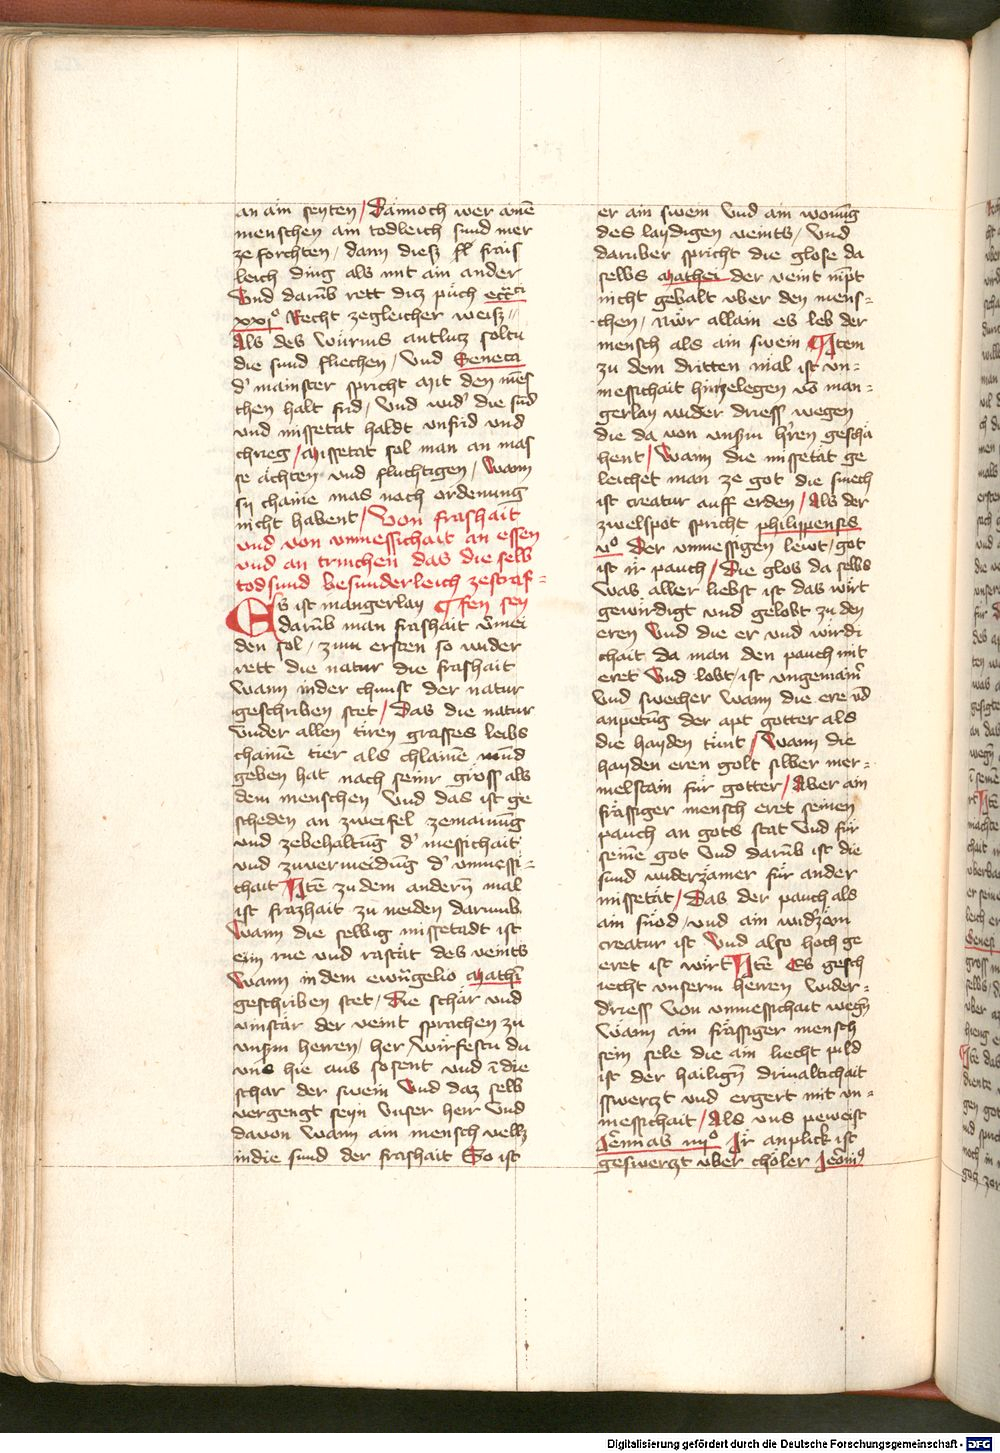 an ain seyten / Dannoch wer aine
menschen ain todleich sund mer
ze forchten / dann diese frais
leich ding als mit ain ander
Und darub rett diz puch ecci
xxjº Recht zegleicher weisz
Als des wurms antlucz soltu
die sund fliechen / Und Seneca
d' mainster spricht Mit den mes
chen halt frid / Und wid' die sud
und missetat haldt unfrid und
chrieg / Missetat sol man an mas
se achten und fluchtigen / Wann
sy chaine mas noch ordenung
nicht habent / Von frashait
und von unmessichait an essen
und an trinchen das die selb
todsund besunderleich zestraf-
Es ist mangerlay fen sey
darub man frashait vmei
den sol / zum ersten so wider
rett die natur die frashait
Wann inder chunst der natur
geschriben stet / Das die natur
under allen tiren grasses leibs
chainem tier als chlaine mund
geben hat nach seinr gross als
dem menschen Und das ist ge
scheden an zweifel zemainung
und zebehaltung d' messichait
und zuvermeidung d' unmessi-
chait Ite zu dem andern mal
ist frazhait zu neiden darumb
Wann die selbig missetadt ist
ein rue und rastat des veints
Wann in dem ewangelio Mathei
geschriben stet / Die schar und
vinstar der veint sprachen zu
unsm herren / her Wurfestu du
uns hie aus so sent uns i die
schar der swein Und daz selb
vergengt seyn Unser herr Und
davon Wann ain mensch vellz
indie sund der frashait So ist
er ain swein Und ain wonung
des laydigen veints / Und
daruber spricht die glose da
selbs Mathei der veint nipt
nicht gebalt uber den mens-
chen / Nwr allain es leb der
mensch als ain swein Item
zu dem dritten mal ist un-
messichait hinzelegen vo man-
gerlay wider driess wegen
die da von unsm h'ren gescha
hent / Wann die missetat ge
leichet man ze got die smech
ist creatur auff erden / Als der
zwelfpot spricht philippensis
vº Der unmessigen lewt / got
ist ir pauch / Die glos da selbs
Was aller liebst ist das wirt
gewirdigt und gelobt zu den
eren Und die er und wirdi
chait da man den pauch mit
eret Und lobt / ist ungemain'
Und swecher wann die ere und
anpetung der apt gotter als
die hayden tunt / Wann die
hayden eren golt silber mer-
melstain fur gotter / Aber ain
frassiger mensch eret seinen
pauch an gots stat Und fur
seine got Und darub ist die
sund widerzamer fur ander
missetat / Das der pauch als
ain snod / und ain widrzem
creatur ist Und also hoch ge
eret ist wirt Ite Es gesch
iecht unserm herren wider-
driess Von unmessichait wegn
Wann ain frassiger mensch
sein sele die ain liecht pild
ist der hailign drivaltichait
sswerzt und ergert mit un-
messichait / Als uns peweist
Jeremias iiijº Ir anplick ist
geswerzt uber choler Jeronimº